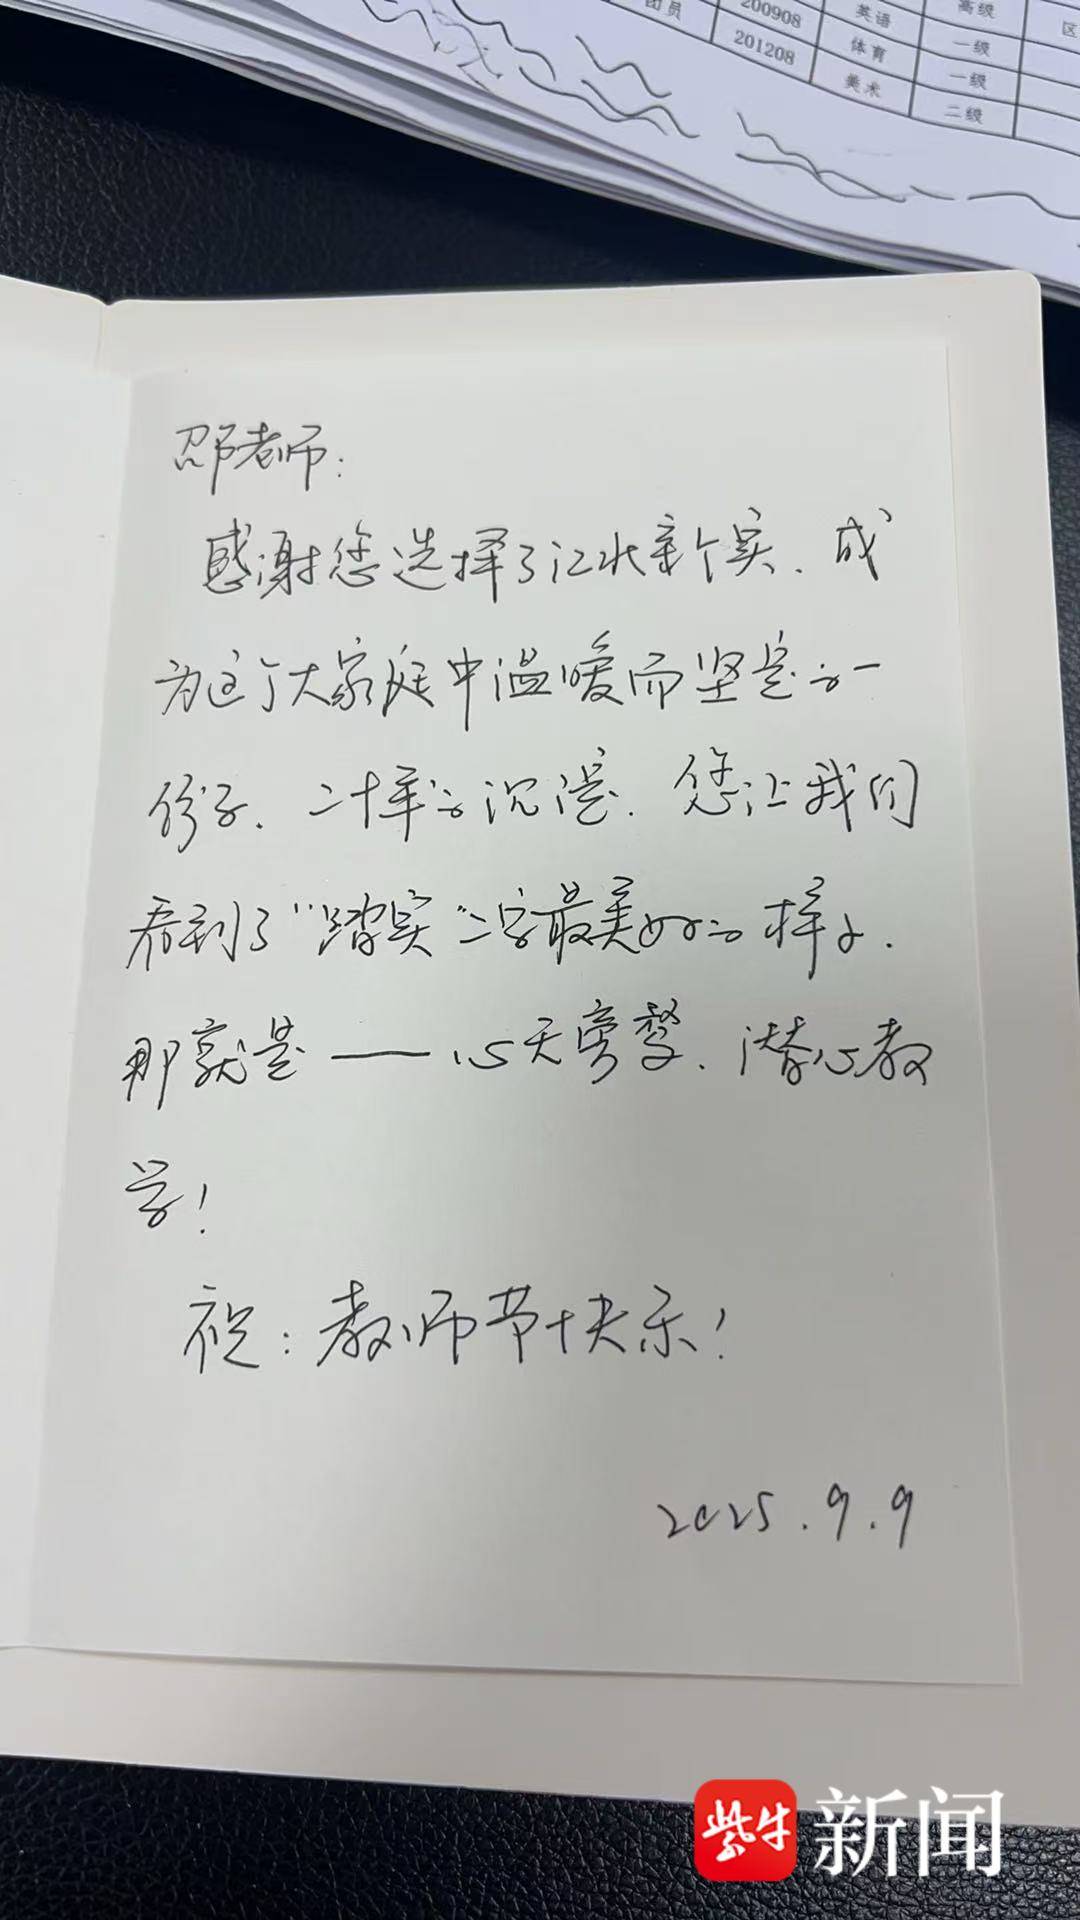 团员
200908
英语
高级
区
201208
体育
一级
美术
一级
二级
邵老师：
感谢您选择了江北新个实、成
为这个大家庭中温暖而坚定的一
份子。二十年的沉淀，您让我们
看到了“踏实”二字最美好的样子，
那就是——心无旁骛、潜心教
学！
祝：教师节快乐！
2025.9.9
紫牛
新闻